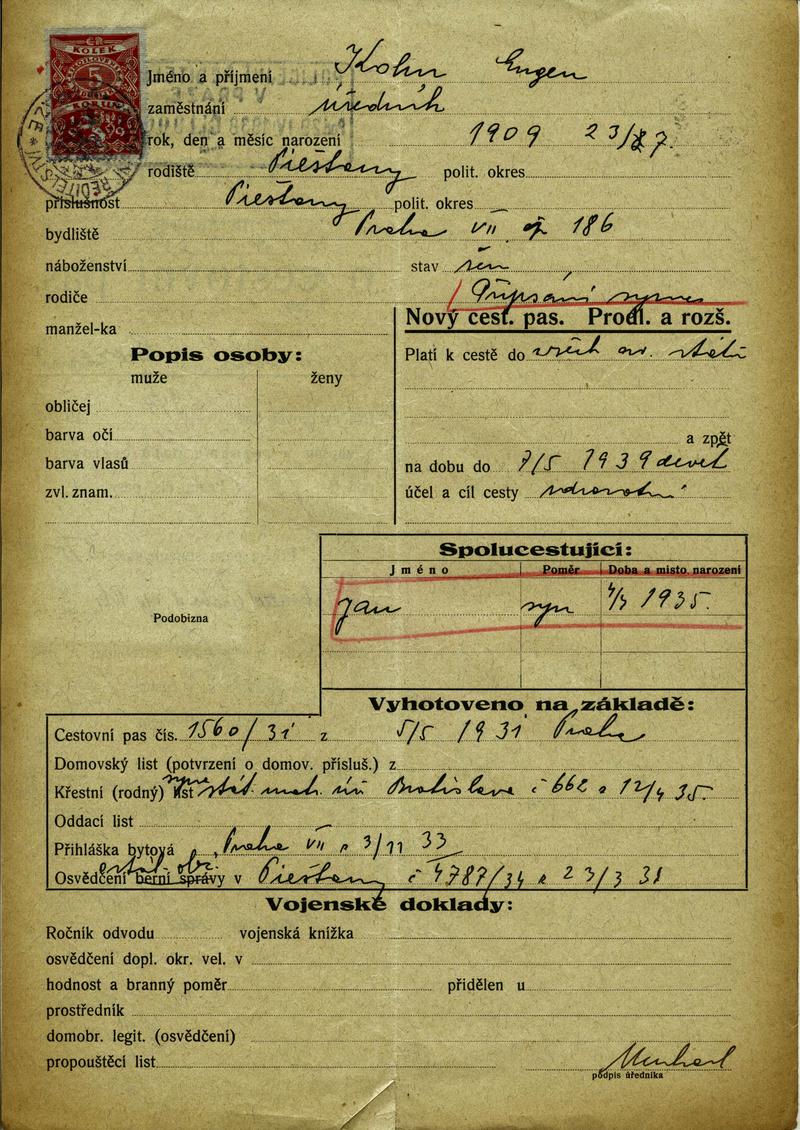 ČR
KOLEK
5
KORUN
Jméno a příjmení Kohn Eugen
zaměstnání úředník
rok, den a měsíc narození 1909 23/7.
rodiště Piešťany polit. okres
příslušnost Piešťany polit. okres —
bydliště Praha VII čp 186
náboženství stav žen
rodiče Připsání syna
manžel-ka
Nový cest. pas. Prodl. a rozš.
Popis osoby:
muže ženy
Platí k cestě do všech ev. států
obličej
barva očí
a zpět
barva vlasů
na dobu do 7/5 1939 devět
zvl. znam.
účel a cíl cesty zdravotní
Spolucestující:
Jméno Poměr Doba a místo narození
Jan syn 4/3 1935.
Podobizna
Vyhotoveno na základě:
Cestovní pas čís. 1560/31 z 5/5 1931 Praha
Domovský list (potvrzení o domov. přísluš.) z
Křestní (rodný) list syna stát. mat. úř Bratislava č 662 z 12/4 35.
Oddací list —
Přihláška bytová Praha VII z 3/11 33
Osvědčení berní správy v stát. obč. Piešťany č 4787/34 z 23/3 31
Vojenské doklady:
Ročník odvodu vojenská knížka
osvědčení dopl. okr. vel. v
hodnost a branný poměr přidělen u
prostředník
domobr. legit. (osvědčení)
propouštěcí list
podpis úředníka